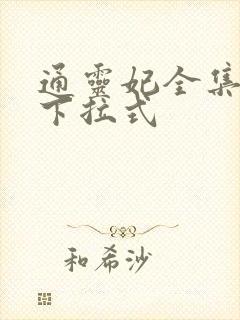 通靈妃全集
下拉式
和希沙